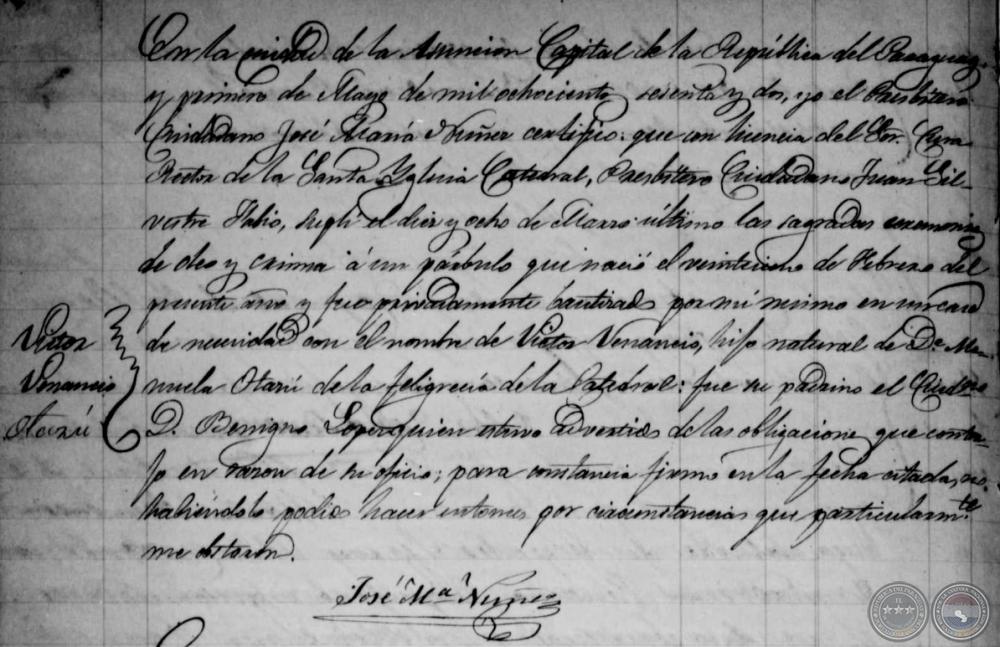 En la ciudad de la Asuncion Capital de la República del Paraguay,
y primero de Mayo de mil ochociento sesenta y dos, yo el Presbitero
Ciudadano José María Nuñez certifico: que con licencia del Sor. Cura
Rector de la Santa Yglecia Catedral, Presbitero Ciudadano Juan Sil-
vestre suplí el diez y ocho de Marzo último las sagradas ceremonias
de oleo y crisma á un párbulo que nació el veinticinco de Febrero del
presente año y fue privadamente bautizado por mí mismo en un caso
de necesidad con el nombre de Victor Venancio, hijo natural de Da. Ma-
nuela Otazú de la feligrecía de la Catedral: fue su padrino el Ciudno
D. Benigno Lopez quien estuvo advertido de las obligaciones que contra-
jo en razon de su oficio; para constancia firmo en la fecha citada, no
habiéndolo podido hacer entonces por circunstancias que particularmte
me obstaron.
José Ma Nuñez
Victor
Venancio
Otazú